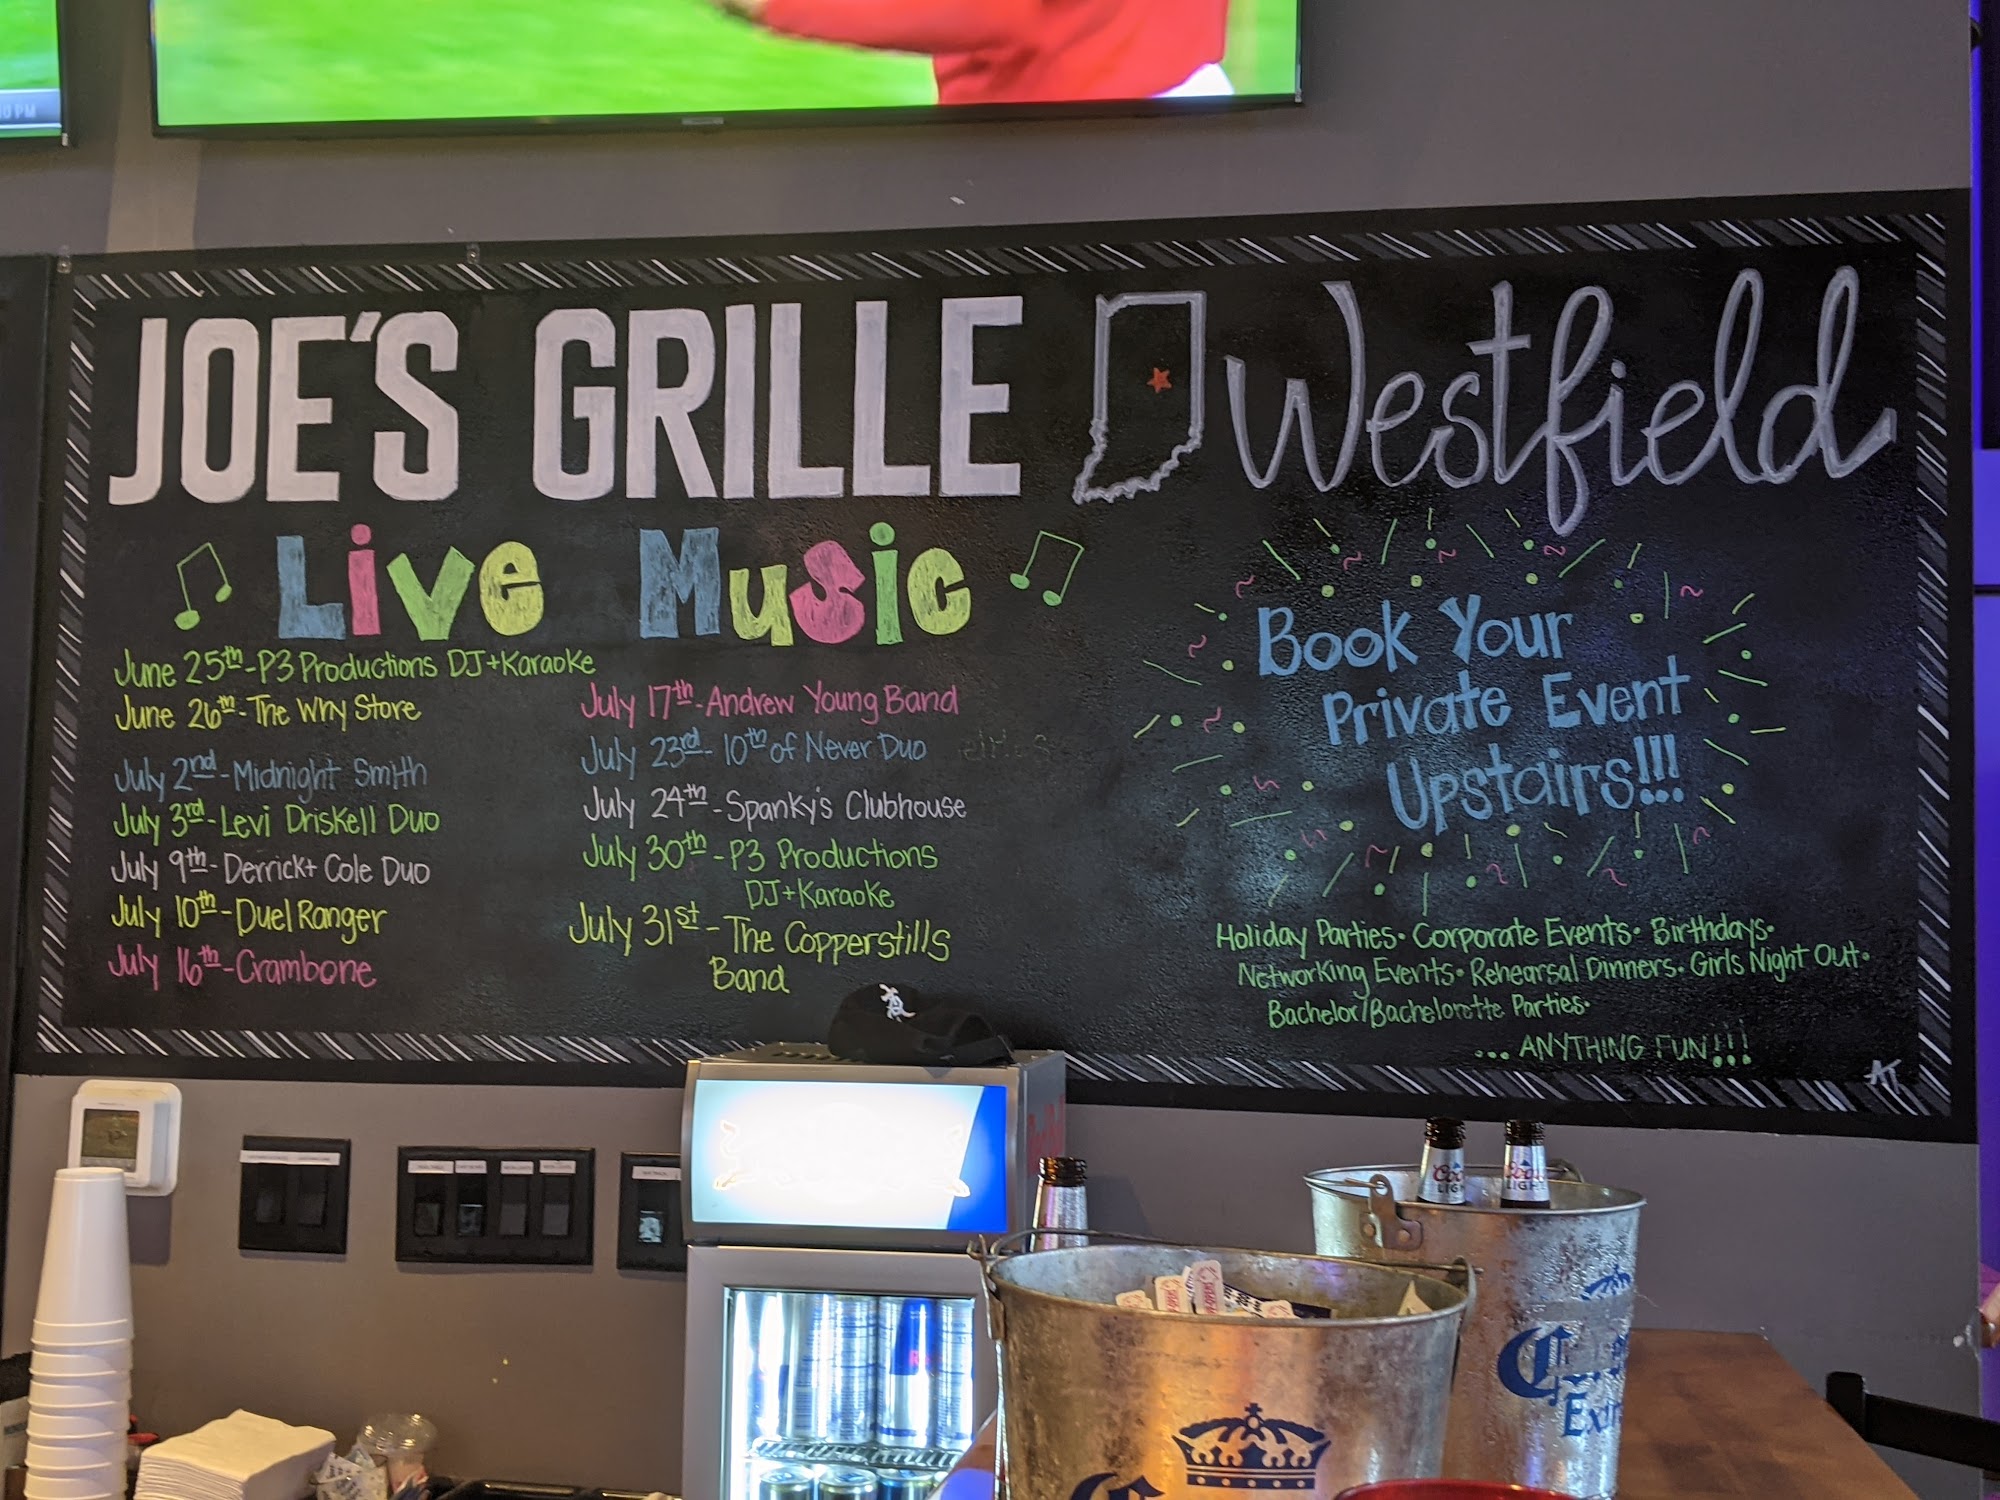 JOE'S GRILLE Westfield
Live Music
June 25th - P3 Productions DJ + Karaoke
June 26th - The Why Store
July 2nd - Midnight Smith
July 3rd - Levi Driskell Duo
July 9th - Derrick + Cole Duo
July 10th - Duel Ranger
July 16th - Crambone
July 17th - Andrew Young Band
July 23rd - 10th of Never Duo
July 24th - Spanky's Clubhouse
July 30th - P3 Productions
DJ + Karaoke
July 31st - The Copperstills
Band
Book Your
Private Event
Upstairs!!!
Holiday Parties • Corporate Events • Birthdays •
Networking Events • Rehearsal Dinners • Girls Night Out •
Bachelor/Bachelorette Parties •
... ANYTHING FUN!!!
AT
PM
Coors
LIGHT
Coors
LIGHT
Extra